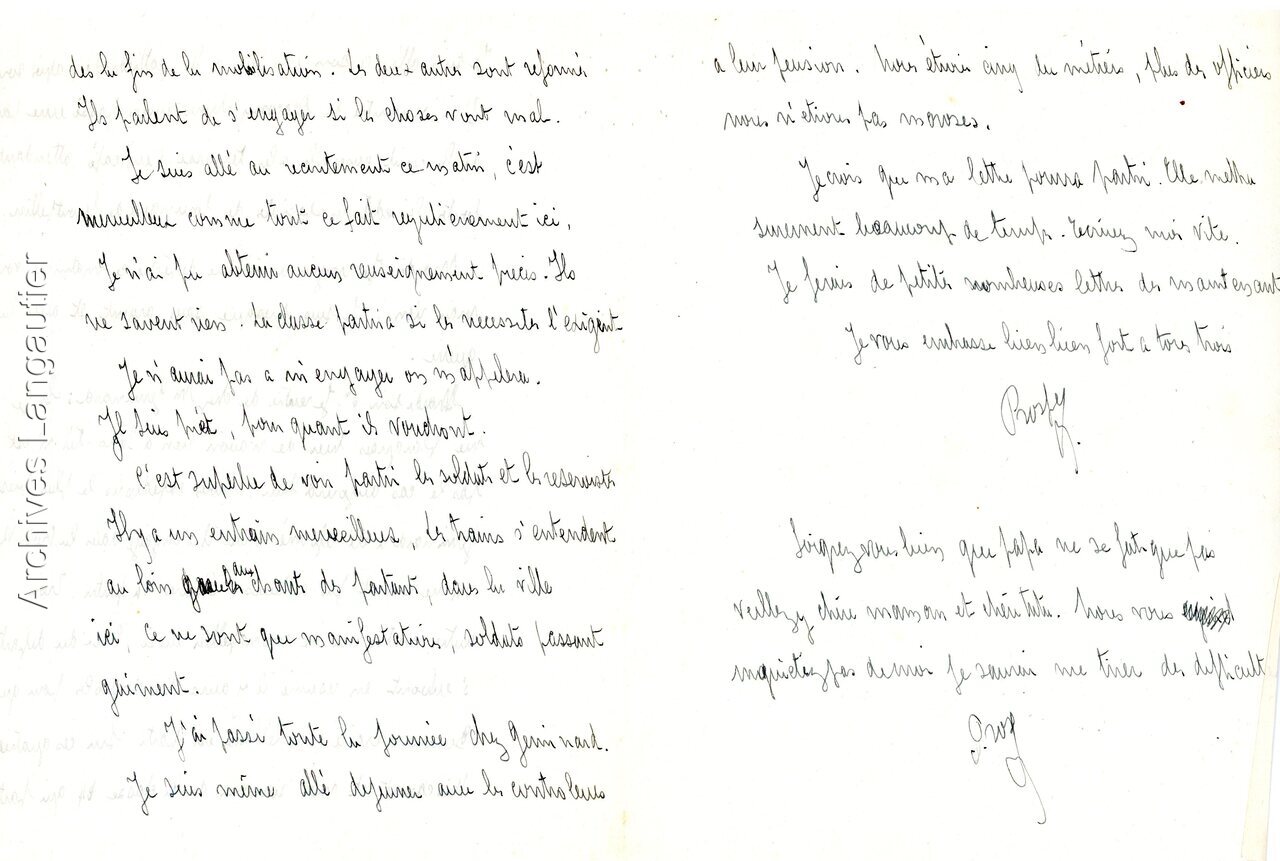 dès la fin de la mobilisation. Les deux autres sont reformés
Ils parlent de s'engager si les choses vont mal.
Je suis allé au recrutement ce matin, c'est
merveilleux comme tout ce fait regulierement ici.
Je n'ai pu obtenir aucun renseignement précis. Ils
ne savent rien. La classe partira si les necessites l'exigent
Je n'aurai pas a m'engager on m'appelera.
Je suis prêt, pour quant ils voudront.
C'est superbe de voir partir les soldats et les reservistes
Il y a un entrain merveilleux, les trains s'entendent
au loin aux chants des partants, dans la ville
ici ce ne sont que manifestations, soldats passant
gaiment.
J'ai passé toute la journée chez
Je suis même allé dejeuner avec les controleurs
a leur pension. Nous étions cinq du métier, plus des officiers
nous n'étions pas moroses.
Je crois que ma lettre pourra partir. Elle mettra
surement beaucoup de temps. Ecrivez moi vite.
Je ferais de petites nombreuses lettres des maintenant
Je vous embrasse bien bien fort a tous trois
Soignez vous bien que papa ne se fatigue pas
veillez y chère maman et chère tata. Nous vous
inquietez pas de moi je saurai me tirer des difficultés
Archives Langautier